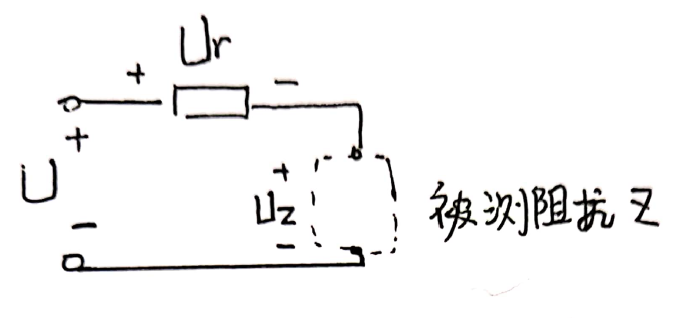 Ur
+ -
+
U
-
+
Uz
-
被测阻抗 Z